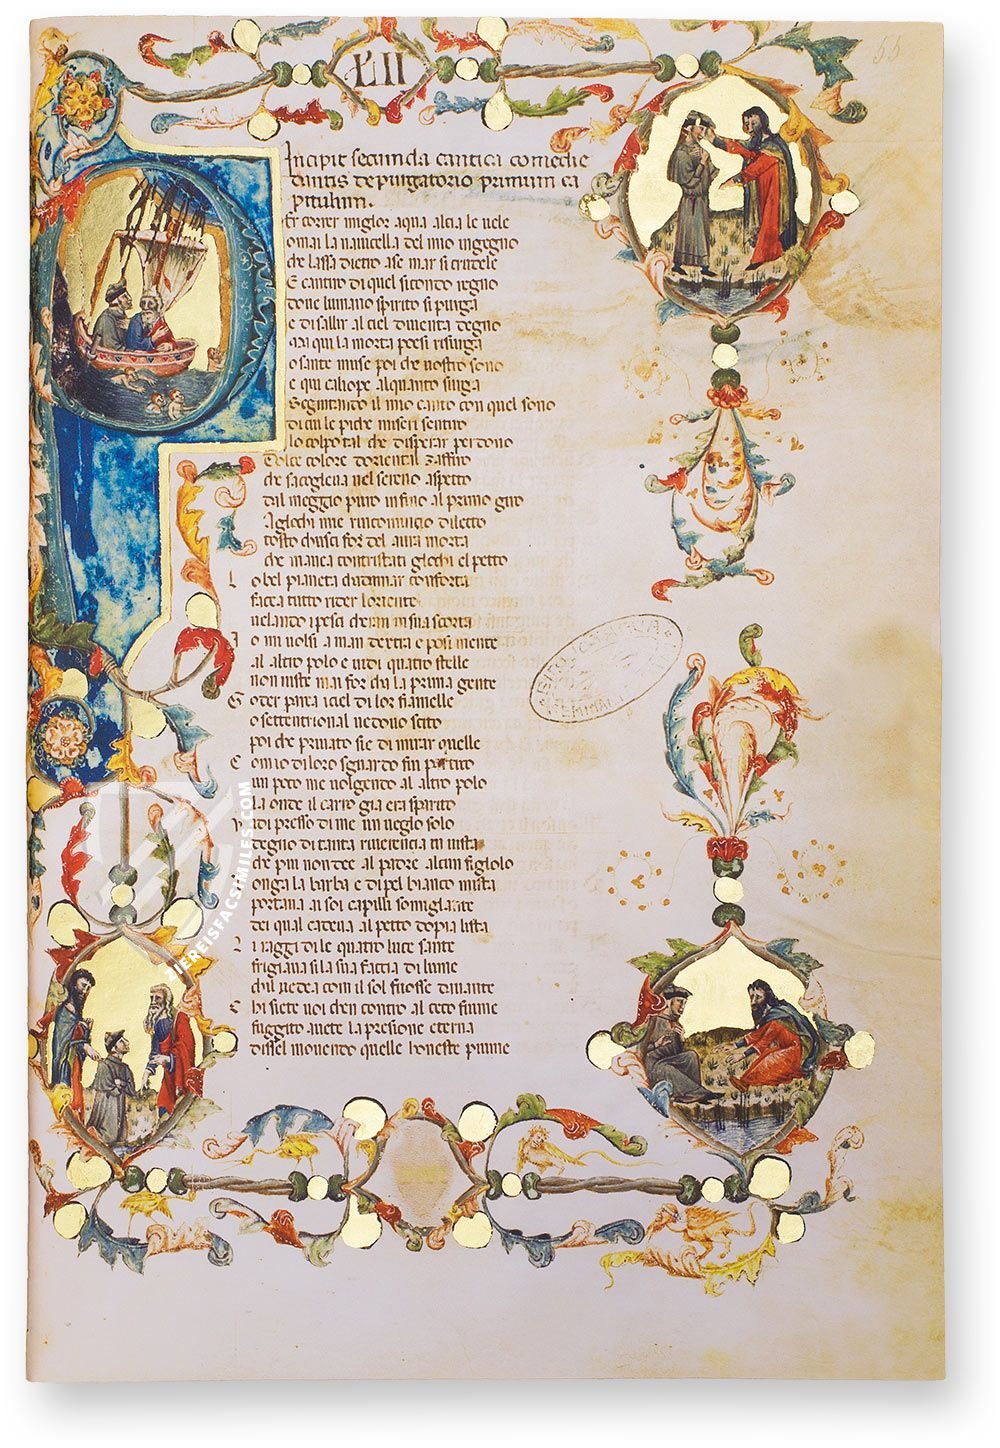 LII
55
Incipit secunda cantica comedie
dantis de purgatorio primum ca
pitulum.
Er correr miglor aqua alcia le uele
omai la nauicella del mio ingegno
che lassa dietro a se mar si crudele
E cantero di quel secondo regno
doue lumano spirito si purga
e di salire al ciel diuenta degno
Ma qui la morta poesi risurga
o sante muse poi che uostro sono
e qui caliope alquanto surga
Seguitando il mio canto con quel sono
di cui le piche misere sentiro
lo colpo tal che disperar perdono
Dolce colore doriental zaffiro
che sacoglieua nel sereno aspetto
dal meggio puro infino al primo giro
Agliochi mie rincomincio diletto
tosto chusci for del aura morta
che mauea contristati gliochi el petto
Lo bel pianeta chadamar conforta
facea tutto rider loriente
uelando i pesci cheran in sua scorta
Io mi uolsi a man dextra e posi mente
al altro polo e uidi quatro stelle
non uiste mai for cha la prima gente
Goder parea i ciel di lor fiamelle
o settentrional uedouo sito
poi che priuato sie di mirar quelle
Com io di loro sguardo fui partito
un poco me uolgendo al altro polo
la onde il carro gia era sparito
Vidi presso di me un ueglo solo
degno di tanta riuerencia in uista
che piu non dee al padre alcun figlolo
onga la barba e di pel bianco mista
portaua ai soi capilli somiglante
dei qual cadeua al petto dopia lista
Li raggi di le quatro luce sante
fregiaua si la sua faccia di lume
chil uedea com il sol fusse dauante
Chi siete uoi chen contro al ceco fiume
fuggito auete la presione eterna
dissel mouendo quelle honeste piume
ZIEREISFACSIMILES.COM